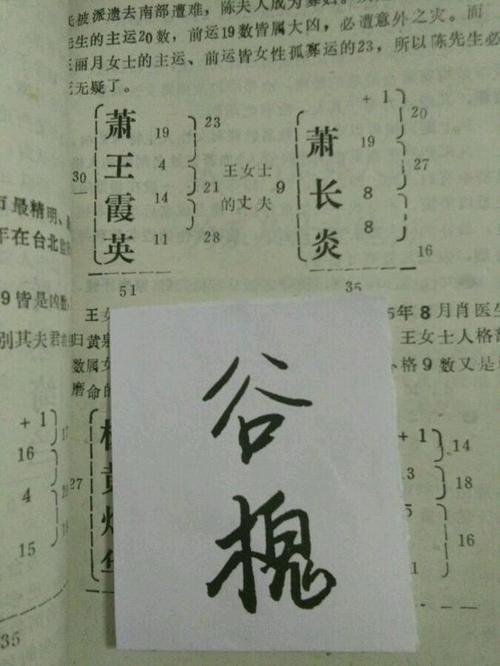 被派遣去南部遭难，陈夫人成为寡妇。
先生的主运20数，前运19数皆属大凶，必遭意外之灾。而
王丽月女士的主运、前运皆女性孤寡运的23，所以陈先生必
死无疑了。
萧 19 23
王 4
30
霞 14 21
英 11 28
51
王女士
的丈夫
+ 1 20
萧 19
9
长 8 27
炎 8 16
35
市最精明、
年在台北
9皆是凶数
别其夫君
王女
年8月肖医生
黄泉
归
王女士人格
数属女
格9数又是
磨 命的
谷
槐
+ 1
16
4
15
35
27
+ 1 14
18
16